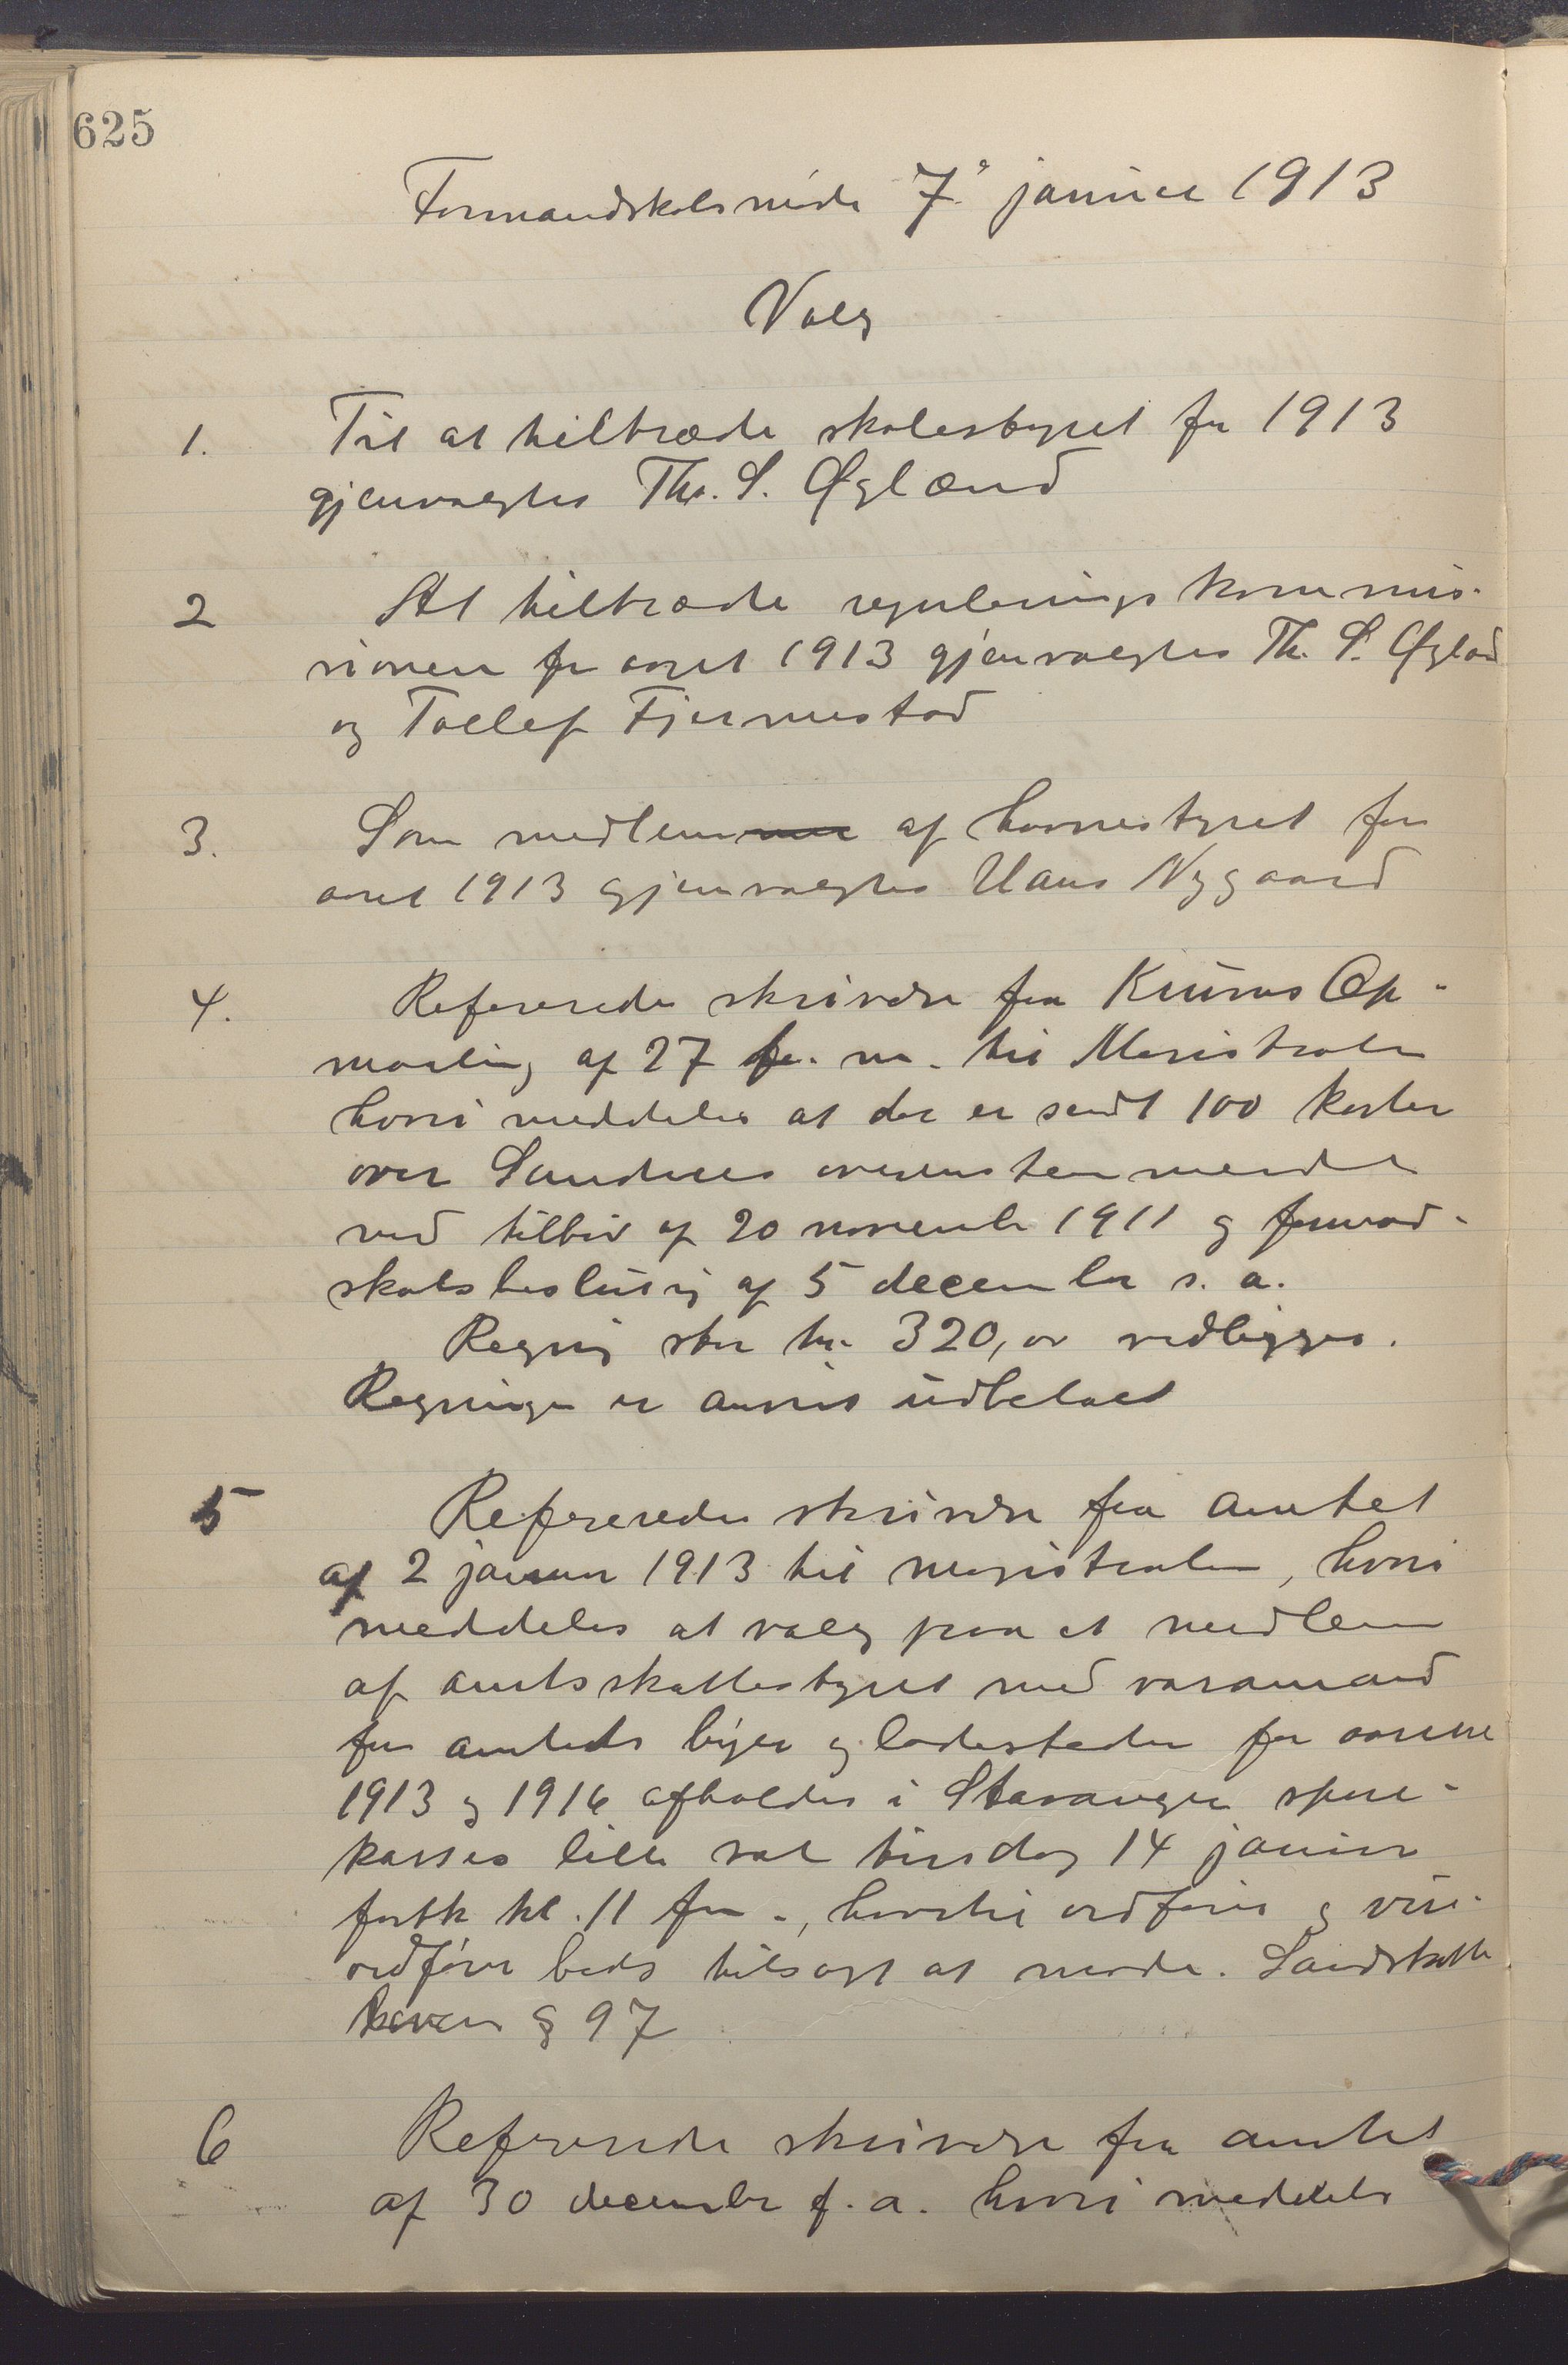 625
Formandskabsmøde 7' januar 1913
Valg
1. Til at tiltræde skolestyret for 1913
gjenvalgtes Th. S. Øglænd
2 At tiltræde regulerings kommis-
sionen for aaret 1913 gjenvalgtes Th. S. Øglænd
og Tollef Fjermestad
3. Som medlemmer af havnestyret for
aaret 1913 gjenvalgtes Hans Nygaard
4. Refererede skrivelse fra Krums Op-
maaling af 27 f. m. til Magistraten
hvori meddeles at der er sendt 100 karter
over Sandnes overensstemmende
med tilbud af 20 november 1911 og formand-
skabsbeslutning af 5 december s. a.
Regning stor kr 320,00 vedlægges.
Regningen er anvist udbetalt
5 Refererede skrivelse fra amtet
af 2 januar 1913 til magistraten, hvori
meddeles at valg paa et medlem
af amtsskattestyret med varamand
for amtets byer og ladesteder for aarene
1913 og 1916 afholdes i Stavanger spare-
kasses lille sal tirsdag 14 januar
førstk kl. 11 fm., hvortil ordfører og vise-
ordfører beds tilsagt at møde. Landskatte
loven § 97
6 Refererede skrivelse fra amtet
af 30 december f. a. hvori meddeles